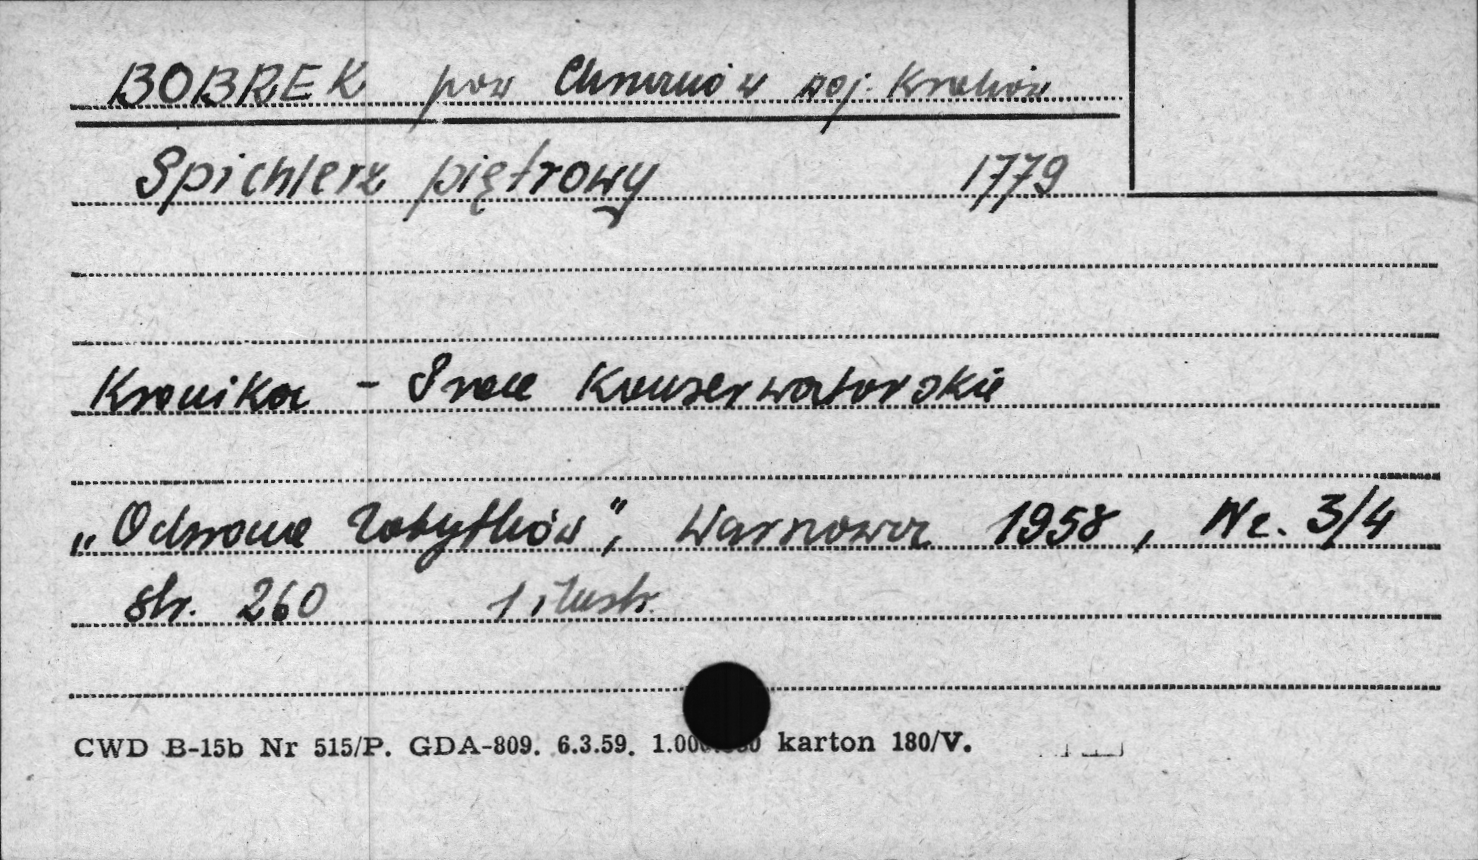 BOBREK pow Chrzanów woj. Kraków
Spichlerz piętrowy 1779
Kronika - Prace Konserwatorskie
„Ochrona Zabytków”, Warszawa 1958, Nr. 3/4
str. 260 1 ilustr.
CWD B-15b Nr 515/P. GDA-809. 6.3.59. karton 180/V.